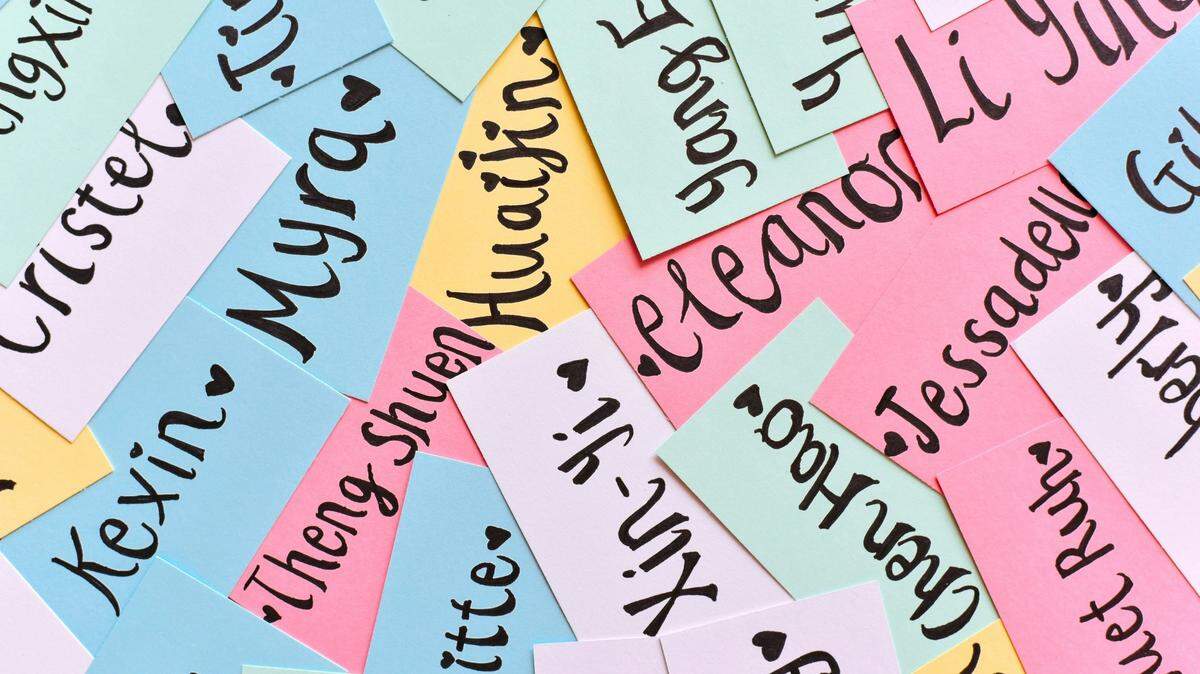 Cristel
Myra
Huaijin
Yang E
Li
Eleanor
Jessadell
Kexin
Theng Shuen
Xin-yi
Chen Hao
itte
herly
uet Ruh